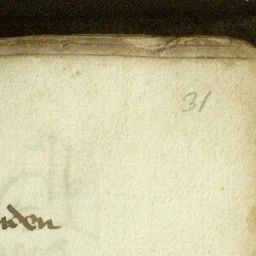 31
nden